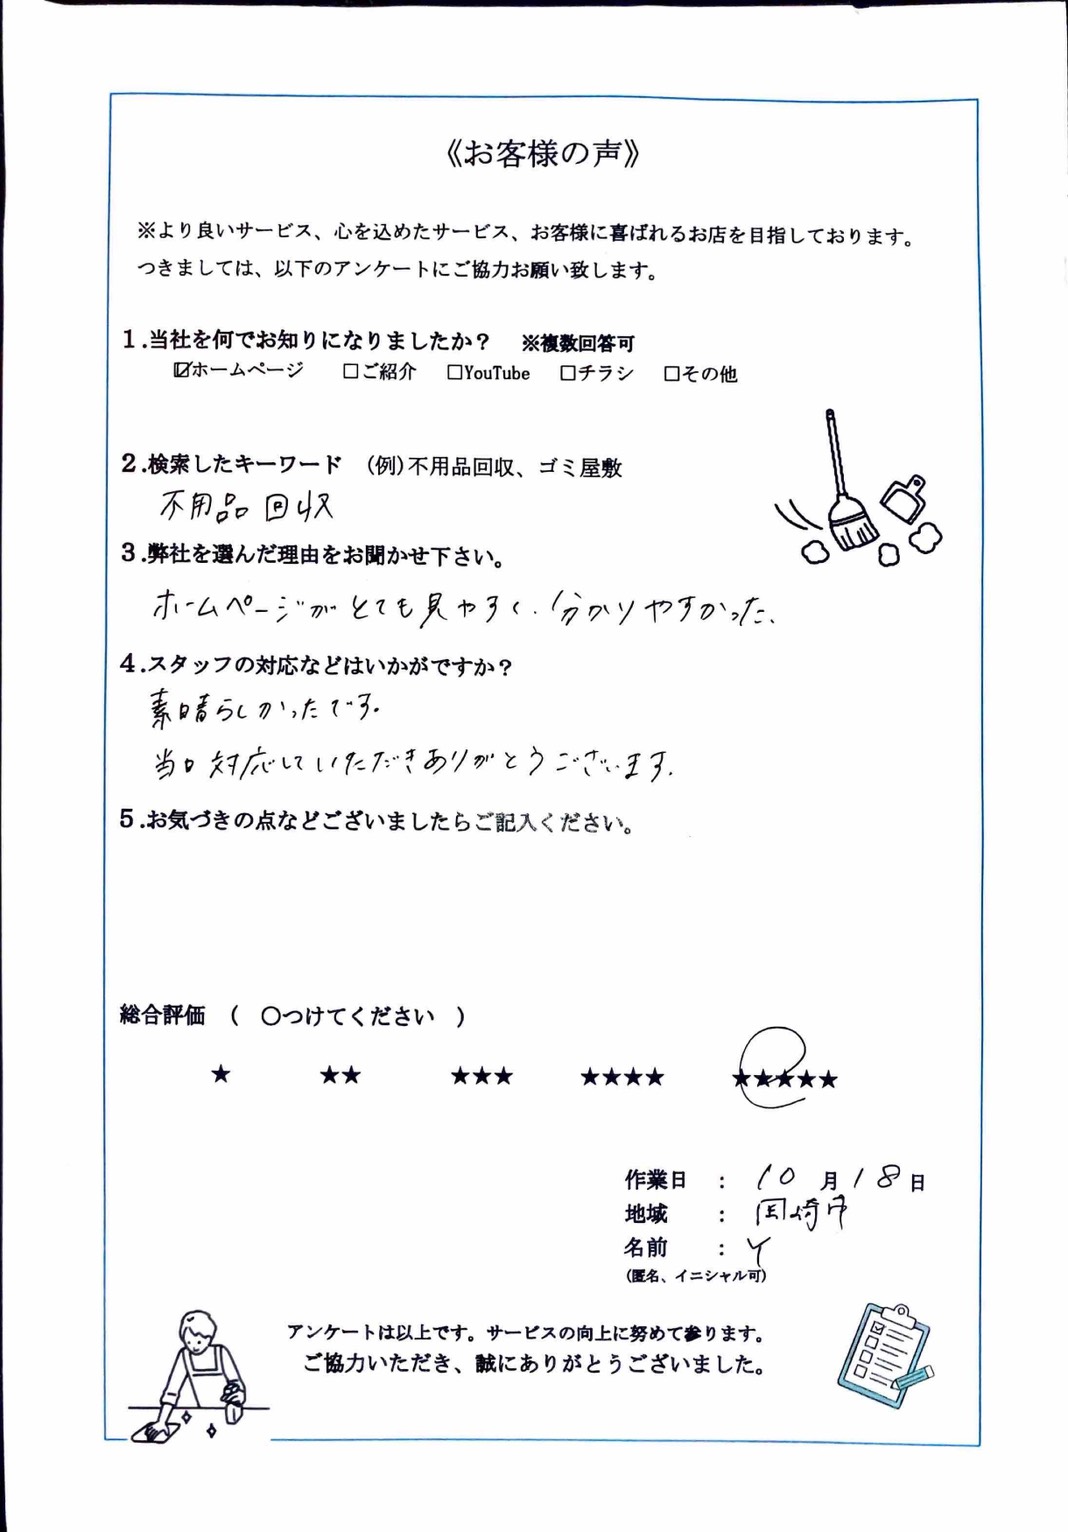 《お客様の声》
※より良いサービス、心を込めたサービス、お客様に喜ばれるお店を目指しております。
つきましては、以下のアンケートにご協力お願い致します。
1.当社を何でお知りになりましたか？ ※複数回答可
☑ホームページ □ご紹介 □YouTube □チラシ □その他
2.検索したキーワード (例)不用品回収、ゴミ屋敷
不用品回収
3.弊社を選んだ理由をお聞かせ下さい。
ホームページがとても見やすく、分かりやすかった、
4.スタッフの対応などはいかがですか？
素晴らしかったです。
当日対応していただきありがとうございます。
5.お気づきの点などございましたらご記入ください。
総合評価 ( 〇つけてください )
★ ★★ ★★★ ★★★★ ★★★★★
作業日 : 10月18日
地域 : 岡崎市
名前 : Y
(匿名、イニシャル可)
アンケートは以上です。サービスの向上に努めて参ります。
ご協力いただき、誠にありがとうございました。